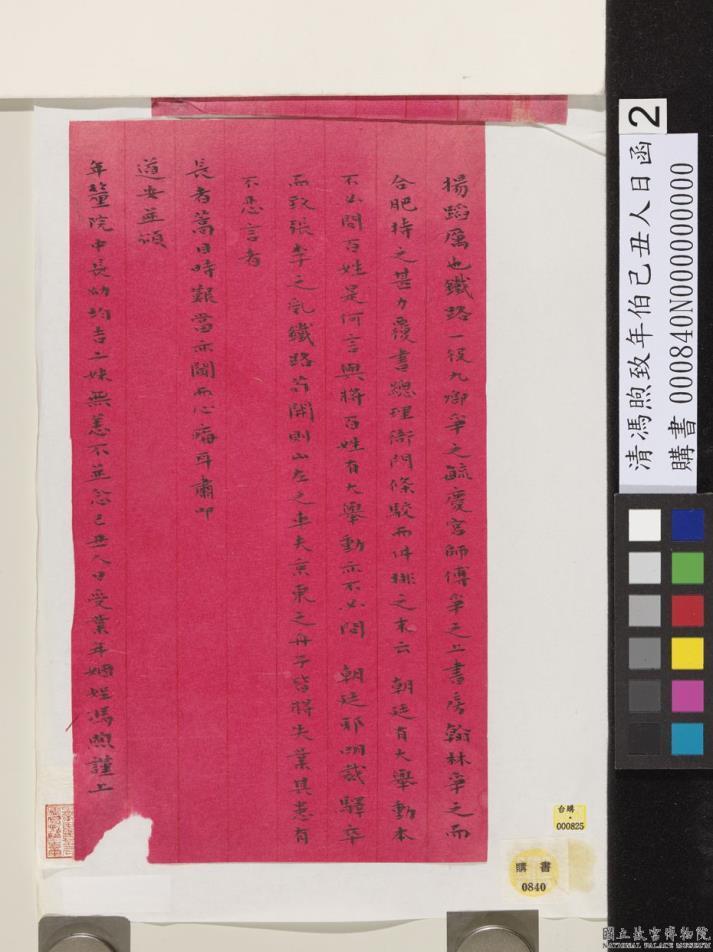 揚蹈厲也鐵路一役九卿爭之毓慶宮師傅爭之上書房翰林爭之而
合肥持之甚力覆書總理衙門條駮而件排之末云 朝廷有大舉動本
不必問百姓是何言與將百姓有大舉動亦不必問 朝廷耶明裁驛卒
而致張李之亂鐵路若開則山左之車夫京東之舟子皆將失業其患有
不忍言者
長者蒿目時艱當亦聞而心痛耳肅叩
道安並頌
年釐院中長幼均吉二妹無恙不並念己丑人日受業年婣姪馮煦謹上
2
清馮煦致年伯己丑人日函
購書 000840N000000000
台購
000825
購書
0840
國立故宮博物院
NATIONAL PALACE MUSEUM